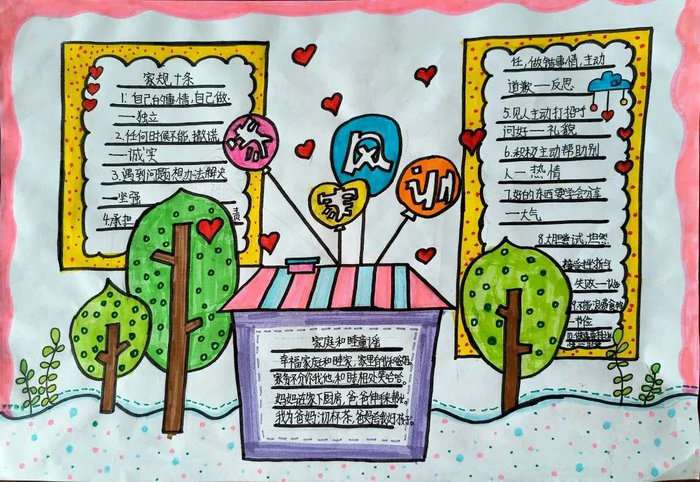 家规十条
1.自己的事情,自己做.
—独立
2.任何时候不能撒谎
—诚实
3.遇到问题想办法解决
—坚强
4.承担
责
任,做错事情,主动
道歉—反思
5.见人主动打招呼
问好—礼貌
6.积极主动帮助别
人—热情
7.好的东西要学会分享
—大气
8.大胆尝试,坦然
接受挫折与
失败—
9.不能浪费食物
—节俭
家
风
家
训
家庭和睦童谣
幸福家庭和睦家,家里有你和爸妈.
家务不分你我他,和睦相处笑哈哈.
妈妈进家下厨房,爸爸伸手来帮忙.
我为爸妈沏杯茶,爸妈